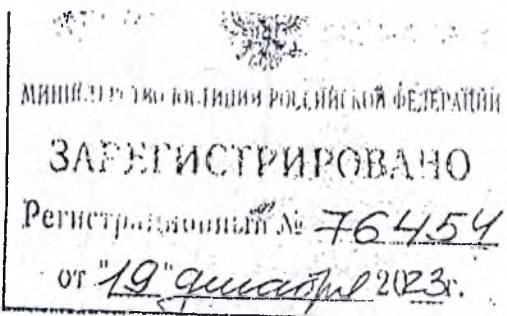 МИНИСТЕРСТВО ЮСТИЦИИ РОССИЙСКОЙ ФЕДЕРАЦИИ
ЗАРЕГИСТРИРОВАНО
Регистрационный № 76454
от "19" декабря 2023г.